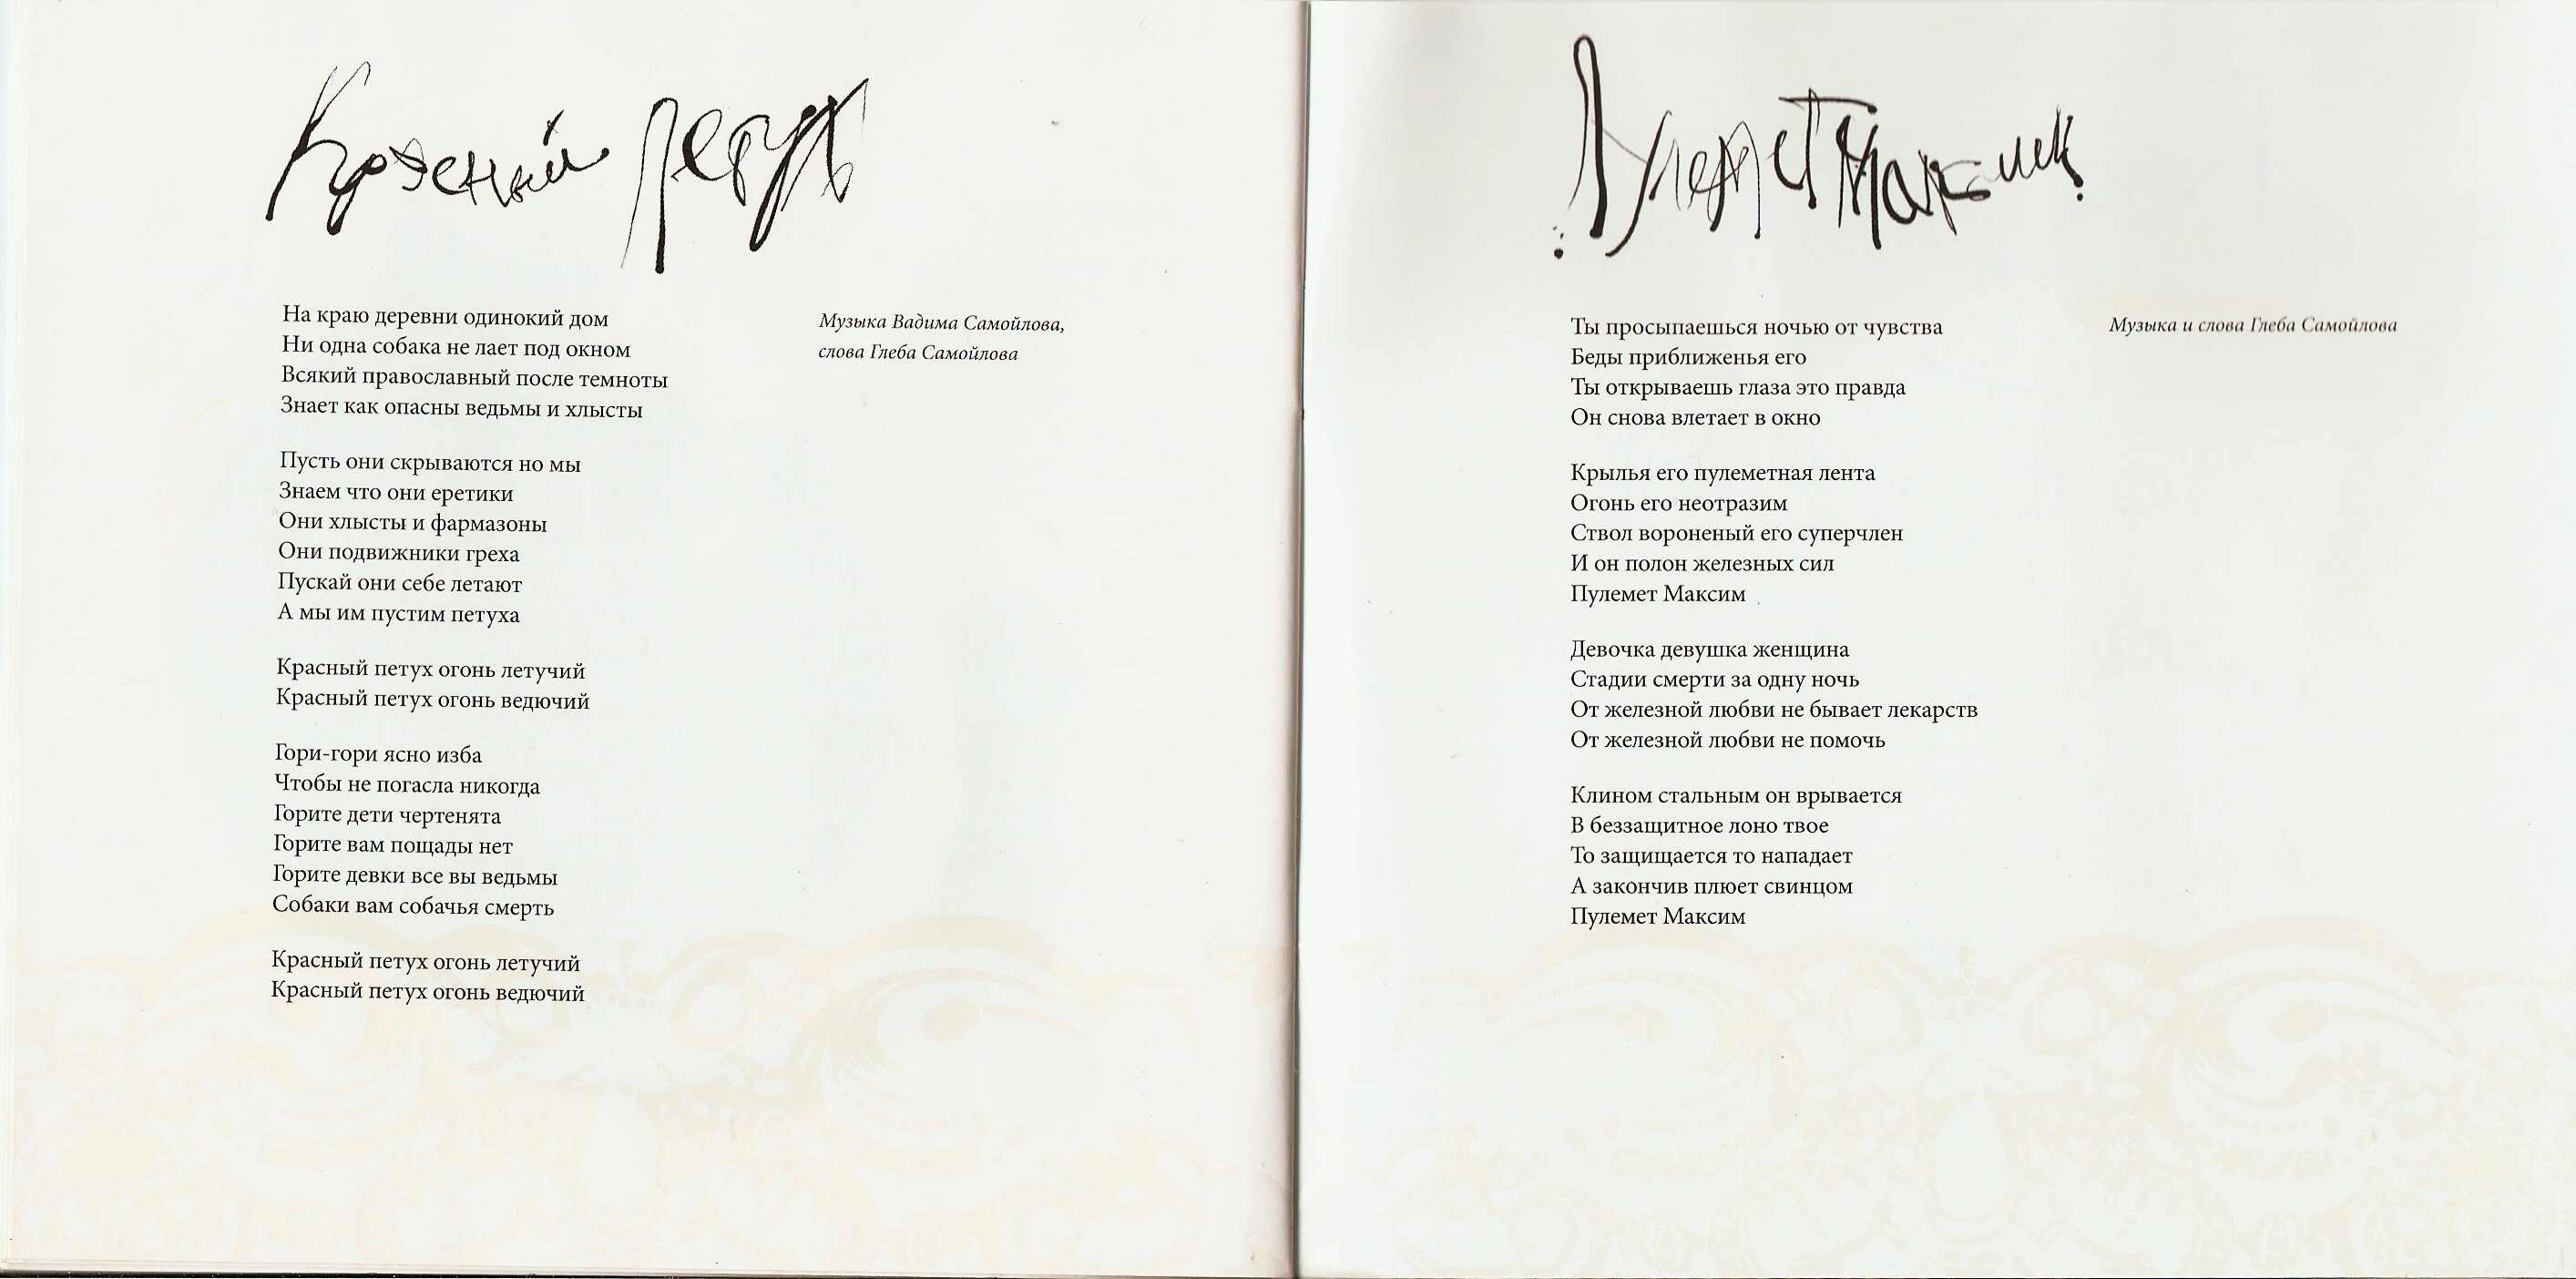 Красный Петух
На краю деревни одинокий дом
Ни одна собака не лает под окном
Всякий православный после темноты
Знает как опасны ведьмы и хлысты
Музыка Вадима Самойлова,
слова Глеба Самойлова
Пусть они скрываются но мы
Знаем что они еретики
Они хлысты и фармазоны
Они подвижники греха
Пускай они себе летают
А мы им пустим петуха
Красный петух огонь летучий
Красный петух огонь ведючий
Гори-гори ясно изба
Чтобы не погасла никогда
Горите дети чертенята
Горите вам пощады нет
Горите девки все вы ведьмы
Собаки вам собачья смерть
Красный петух огонь летучий
Красный петух огонь ведючий
Пулемет Максим
Ты просыпаешься ночью от чувства
Беды приближенья его
Ты открываешь глаза это правда
Он снова влетает в окно
Музыка и слова Глеба Самойлова
Крылья его пулеметная лента
Огонь его неотразим
Ствол вороненый его суперчлен
И он полон железных сил
Пулемет Максим
Девочка девушка женщина
Стадии смерти за одну ночь
От железной любви не бывает лекарств
От железной любви не помочь
Клином стальным он врывается
В беззащитное лоно твое
То защищается то нападает
А закончив плюет свинцом
Пулемет Максим